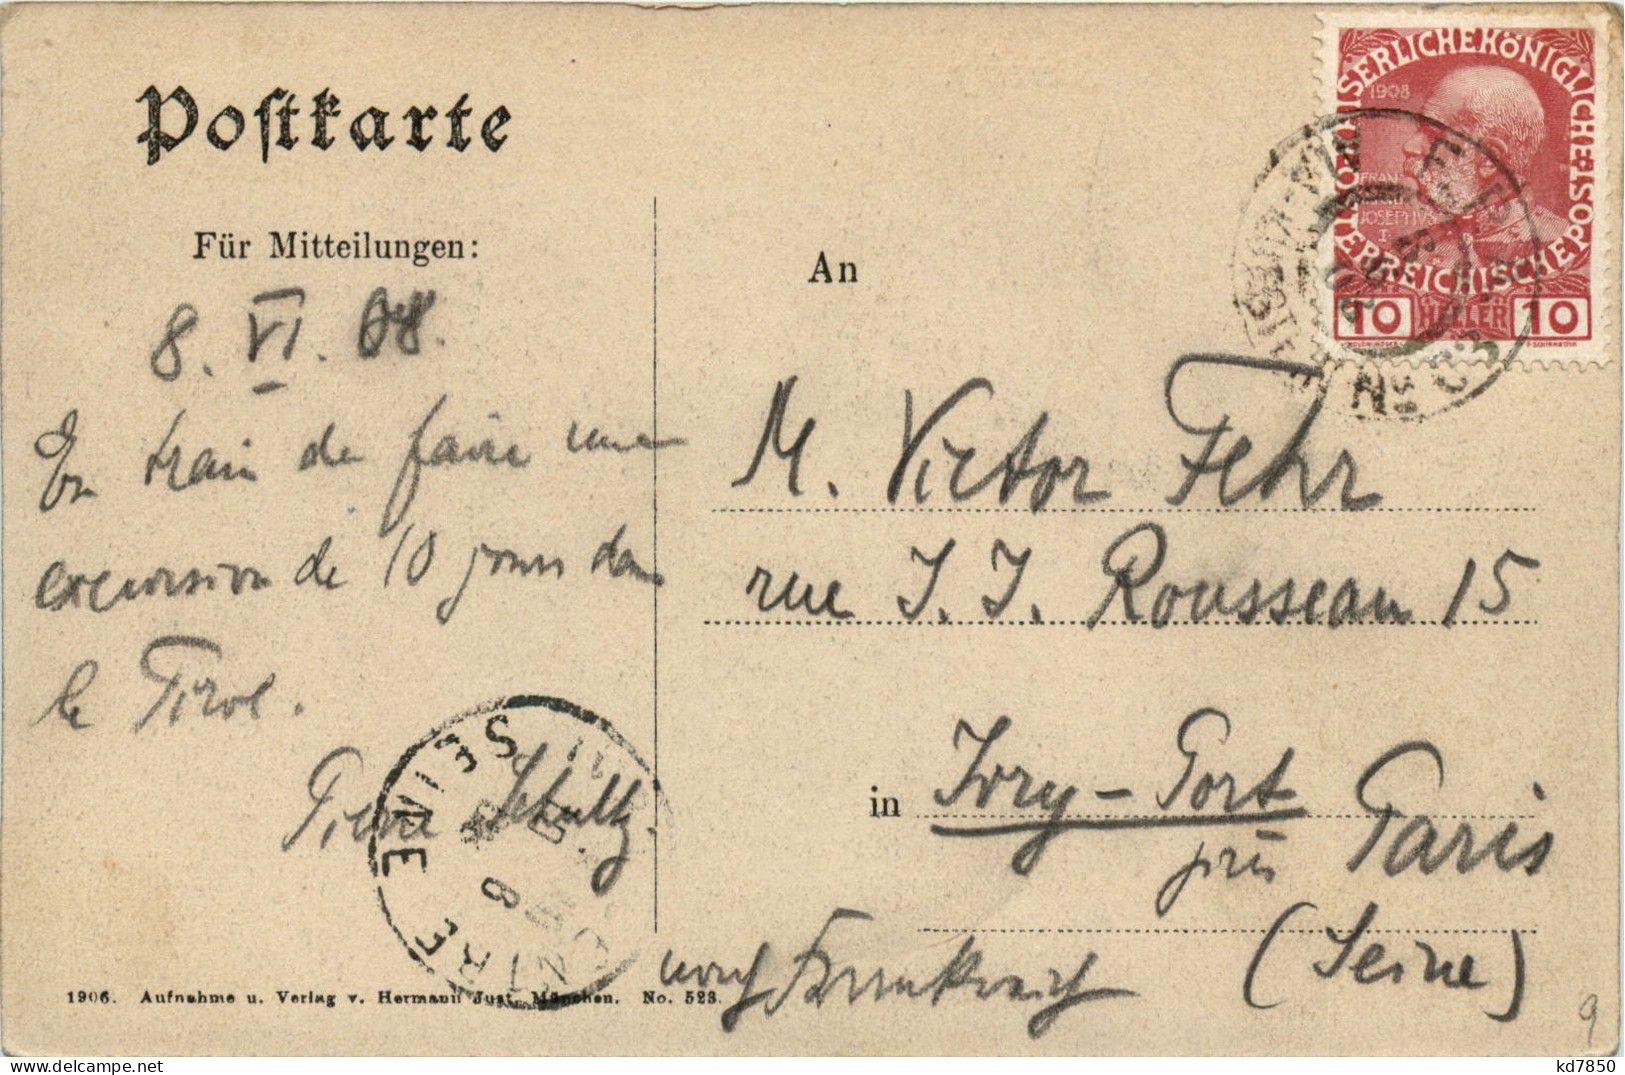 Postkarte
Für Mitteilungen:
8. VI. 08.
En train de faire une
excursion de 10 jours dans
le Tirol.
Pierre Schultz.
1906. Aufnahme u. Verlag v. Hermann Just, München. No. 523.
An
M. Victor Fehr
rue J. J. Rousseau 15
in Ivry-Port
près Paris
(Seine)
nach Frankreich
KAISERLICHE KÖNIGLICHE
ÖSTERREICHISCHE POST
1908
FRAN
JOSEPHVS
I
10 HELLER 10
No 63
SEINE
9
kd7850